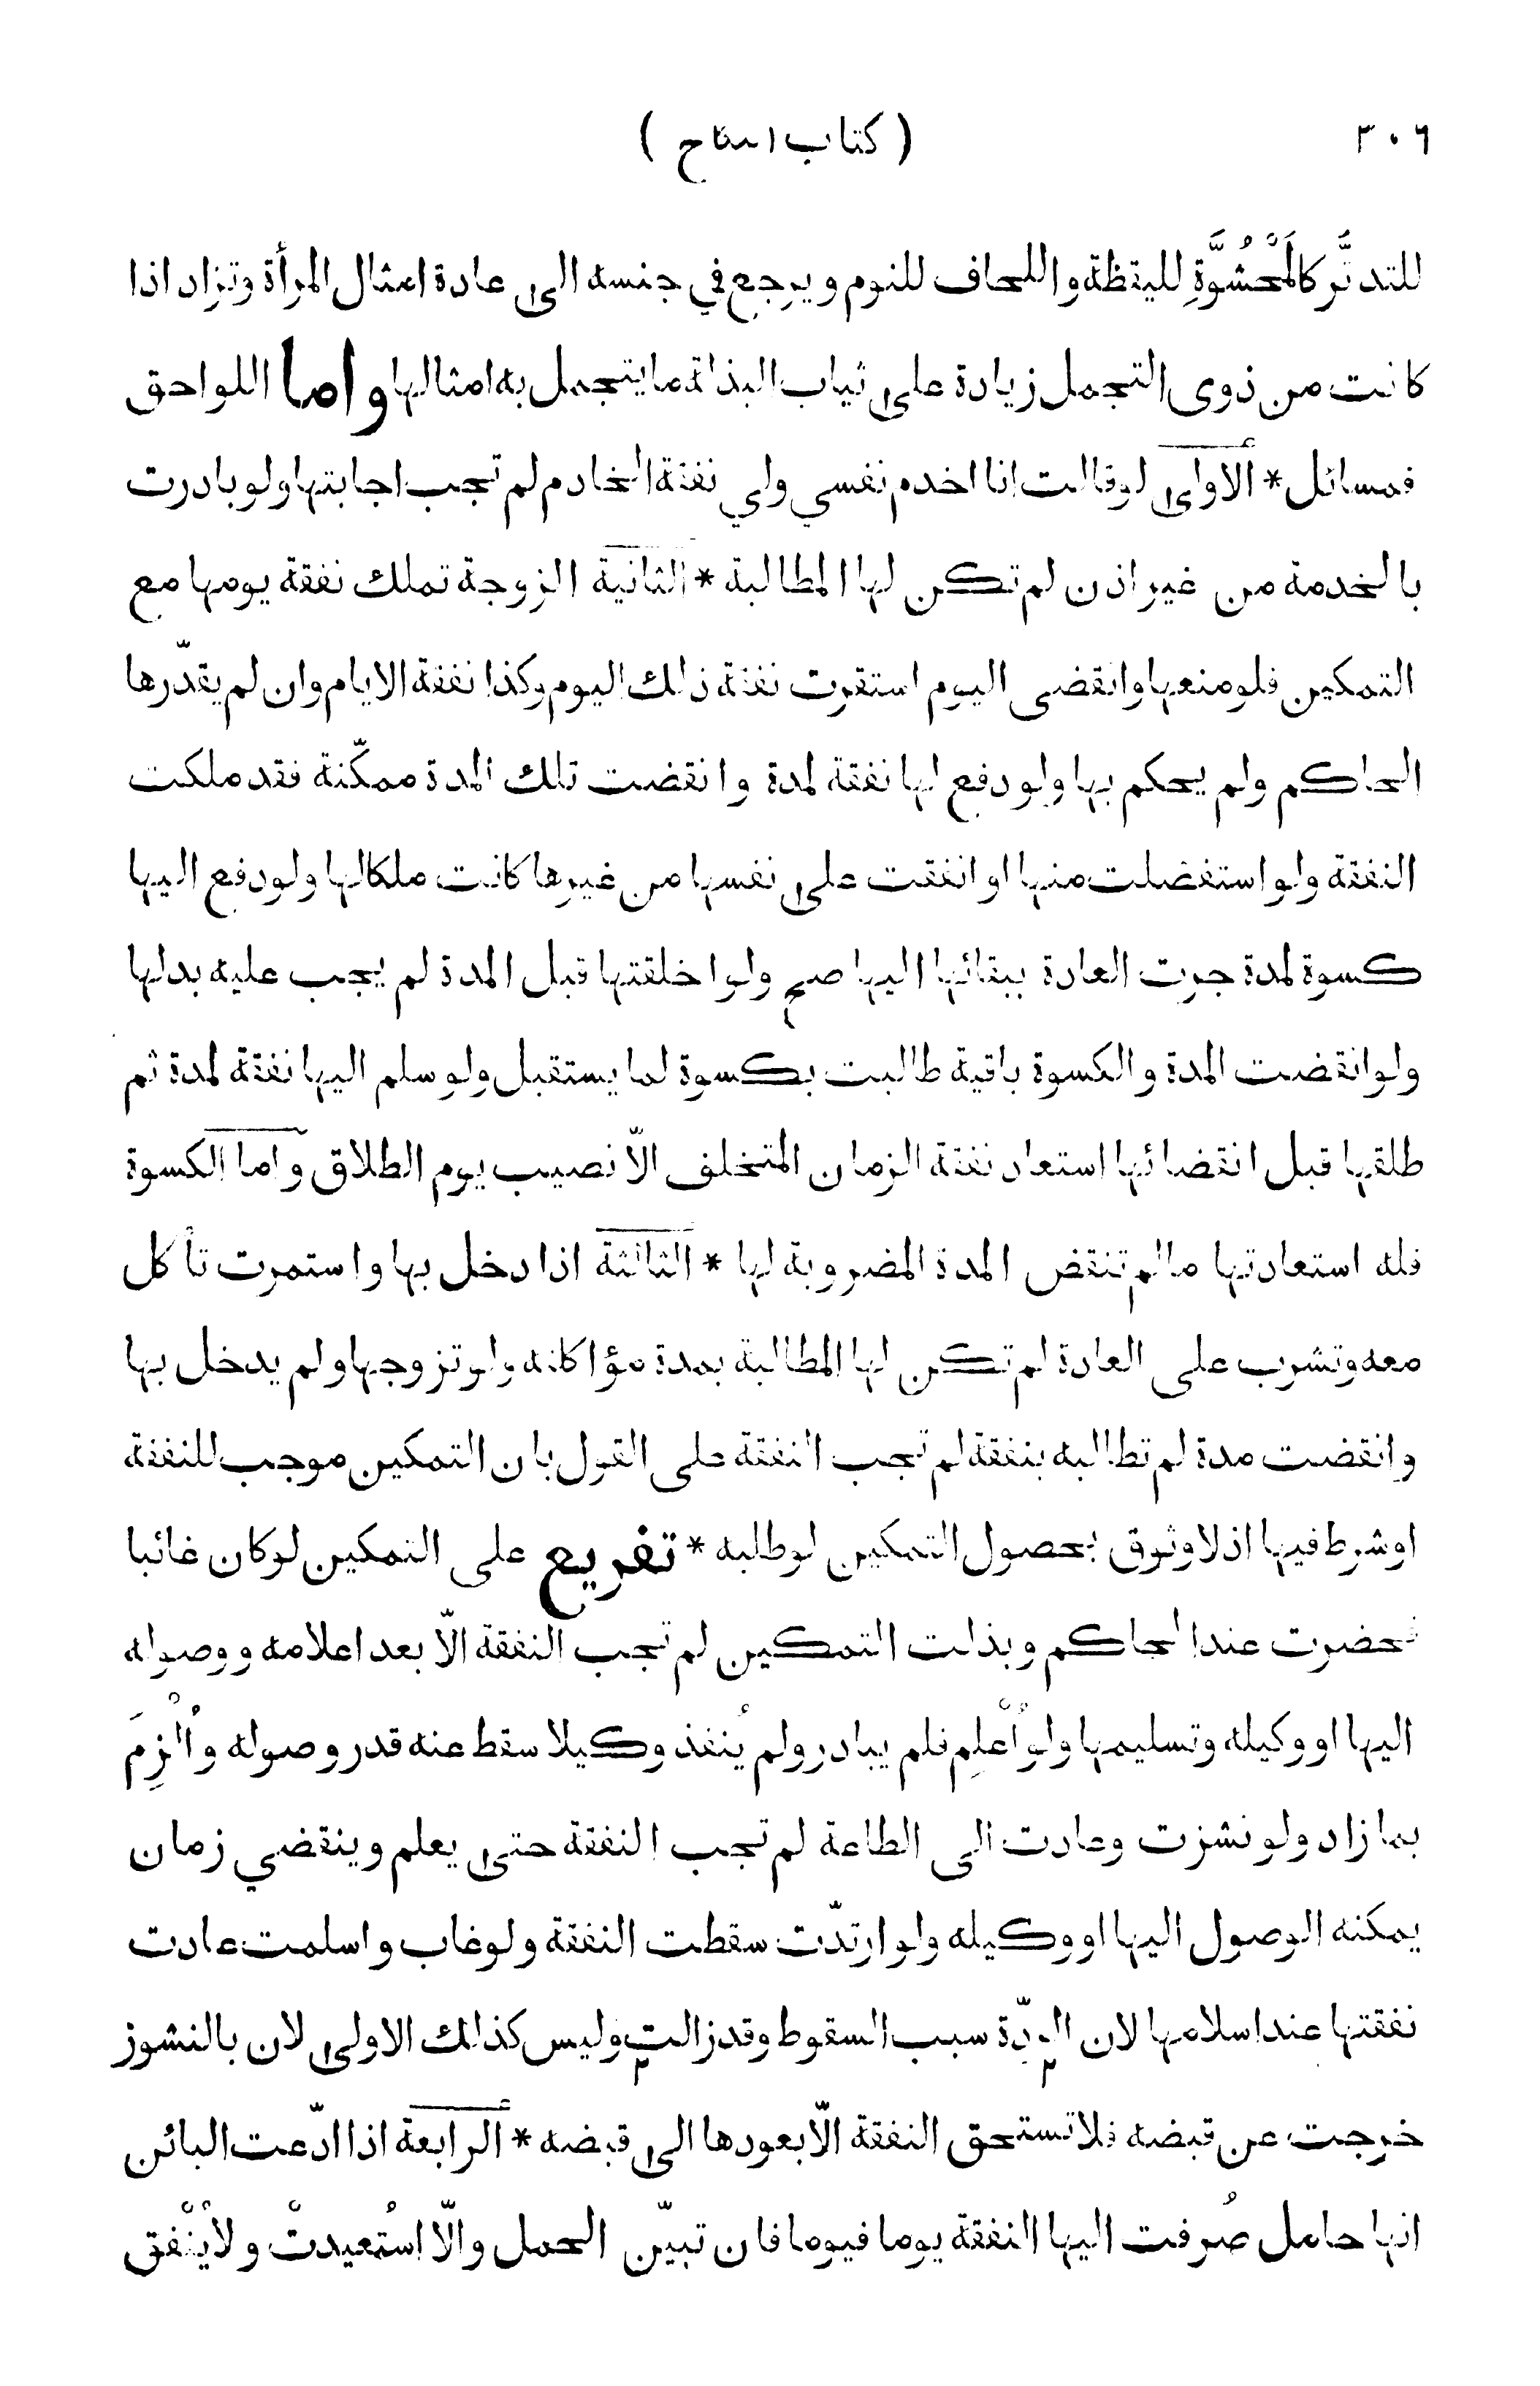 ٣٠٦ ( كتاب النكاح )
للتدثّر كالمَحْشُوَّةِ لليقظة واللحاف للنوم ويرجع في جنسه الى عادة امثال المرأة وتزاد اذا
كانت من ذوى التجمل زيادة على ثياب البذلة ما يتجمل به امثالها واما اللواحق
فمسائل * الاولى لو قالت انا اخدم نفسي ولي نفقة الخادم لم تجب اجابتها ولو بادرت
بالخدمة من غير اذن لم تكن لها المطالبة * الثانية الزوجة تملك نفقة يومها مع
التمكين فلو منعها وانقضى اليوم استقرت نفقة ذلك اليوم وكذا نفقة الايام وان لم يقدّرها
الحاكم ولم يحكم بها ولو دفع لها نفقة لمدة وانقضت تلك المدة ممكّنة فقد ملكت
النفقة ولو استفضلت منها او انفقت على نفسها من غيرها كانت ملكا لها ولو دفع اليها
كسوة لمدة جرت العادة ببقائها اليها صح ولو اخلقتها قبل المدة لم يجب عليه بدلها
ولو انقضت المدة والكسوة باقية طالبت بكسوة لما يستقبل ولو سلم اليها نفقة لمدة ثم
طلقها قبل انقضائها استعاد نفقة الزمان المتخلف الاّ نصيب يوم الطلاق واما الكسوة
فله استعادتها ما لم تنقض المدة المضروبة لها * الثالثة اذا دخل بها واستمرت تأكل
معه وتشرب على العادة لم تكن لها المطالبة بمدة مؤاكلته ولو تزوجها ولم يدخل بها
وانقضت مدة لم تطالبه بنفقة لم تجب النفقة على القول بان التمكين موجب للنفقة
او شرط فيها اذ لا وثوق بحصول التمكين لو طلبه * تفريع على التمكين لو كان غائبا
فحضرت عند الحاكم وبذلت التمكين لم تجب النفقة الاّ بعد اعلامه ووصوله
اليها او وكيله وتسليمها ولو أُعْلِم فلم يبادر ولم يُنفذ وكيلا سقط عنه قدر وصوله وأُلْزِمَ
بما زاد ولو نشزت وعادت الى الطاعة لم تجب النفقة حتى يعلم وينقضي زمان
يمكنه الوصول اليها او وكيله ولو ارتدّت سقطت النفقة ولو غاب واسلمت عادت
نفقتها عند اسلامها لان الردّة سبب السقوط وقد زالت وليس كذلك الاولى لان بالنشوز
خرجت عن قبضه فلا تستحق النفقة الاّ بعودها الى قبضه * الرابعة اذا ادّعت البائن
انها حامل صُرفت اليها النفقة يوما فيوما فان تبيّن الحمل والاّ اسْتُعيدتْ ولا يُنْفق